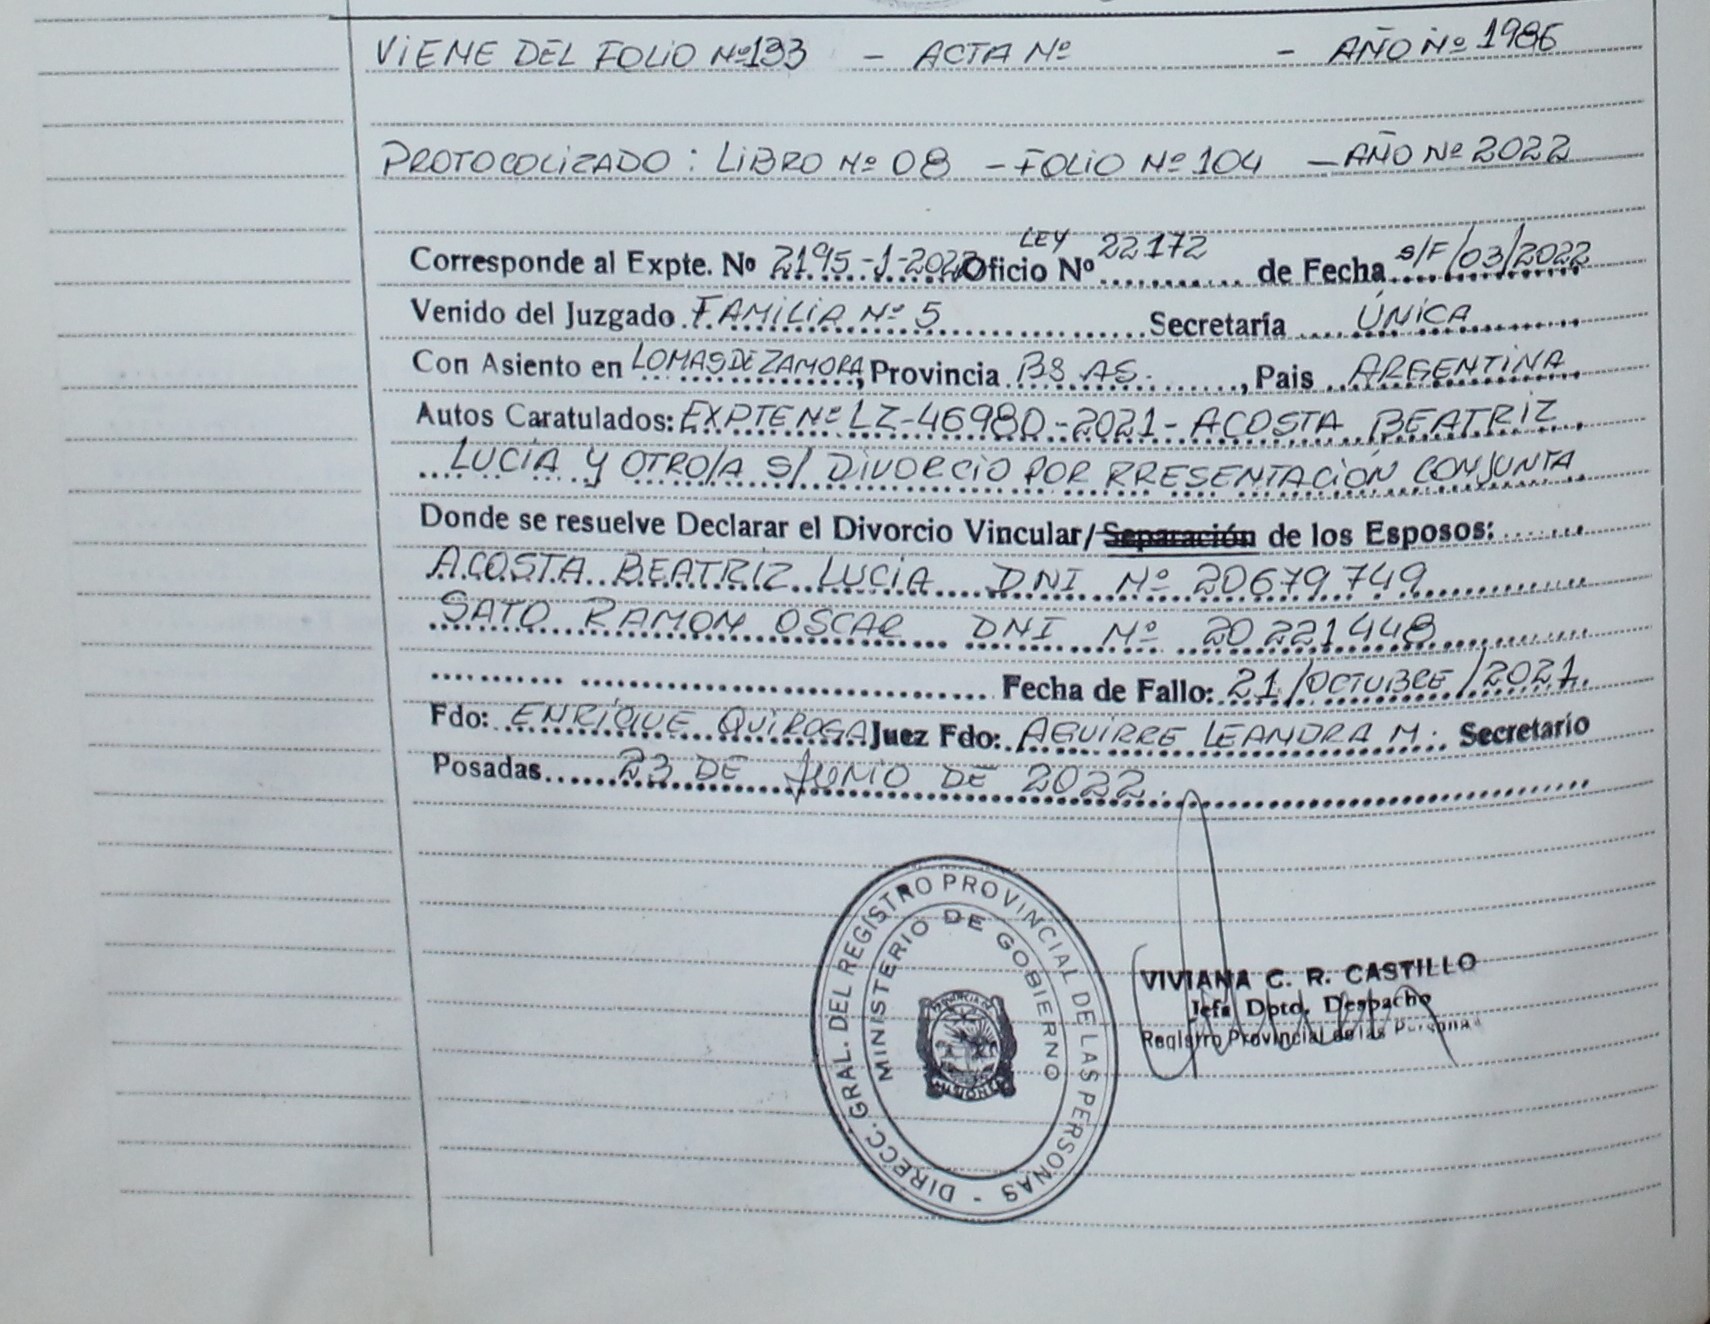 VIENE DEL FOLIO Nº 133 - ACTA Nº - AÑO Nº 1986
PROTOCOLIZADO: LIBRO Nº 08 - FOLIO Nº 104 - AÑO Nº 2022
Corresponde al Expte. Nº 2195-1-2022 Oficio Nº LEY 22172 de Fecha s/F/03/2022
Venido del Juzgado FAMILIA Nº 5 Secretaría ÚNICA
Con Asiento en LOMAS DE ZAMORA, Provincia BS AS., Pais ARGENTINA
Autos Caratulados: EXPTE Nº LZ-46980-2021- ACOSTA BEATRIZ
LUCÍA Y OTRO/A S/ DIVORCIO POR PRRESENTACIÓN CONJUNTA
Donde se resuelve Declarar el Divorcio Vincular/Separación de los Esposos:
ACOSTA BEATRIZ LUCÍA DNI Nº 20679749
SATO RAMON OSCAR DNI Nº 20221448
Fecha de Fallo: 21/OCTUBRE/2021.
Fdo: ENRÍQUE QUIROGA Juez Fdo: AGUIRRE LEANDRA M. Secretario
Posadas 23 DE JUNIO DE 2022.
DIRECC. GRAL. DEL REGISTRO PROVINCIAL DE LAS PERSONAS -
MINISTERIO DE GOBIERNO
PROVINCIA DE
MISIONES
VIVIANA C. R. CASTILLO
Jefa Dpto. Despacho
Registro Provincial de las Personas